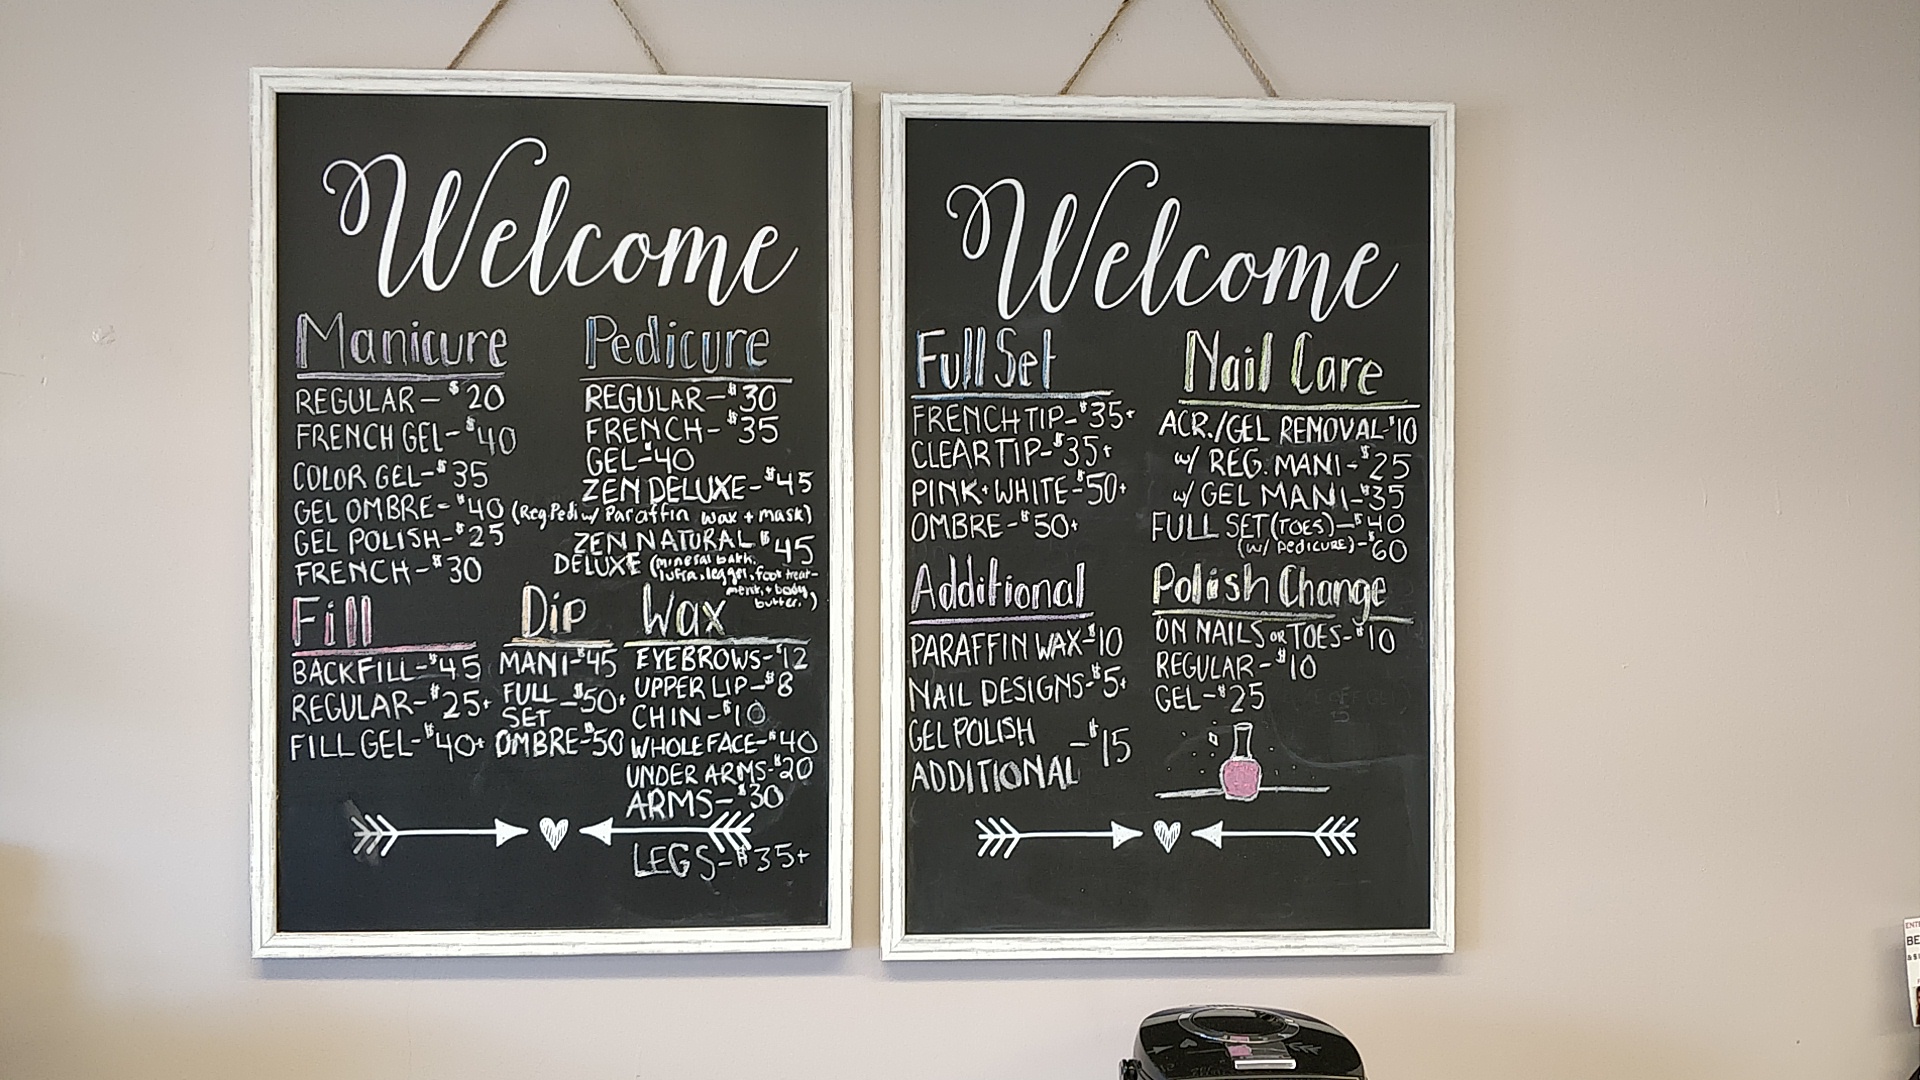 Welcome
Manicure
REGULAR - $20
FRENCH GEL - $40
COLOR GEL - $35
GEL OMBRE - $40
GEL POLISH - $25
FRENCH - $30
Pedicure
REGULAR - $30
FRENCH - $35
GEL - $40
ZEN DELUXE - $45
(Reg Pedi w/ Paraffin wax + mask)
ZEN NATURAL $45
DELUXE (mineral bath,
lufra, leg gel, foot treat-
ment, + body
butter.)
Fill
BACKFILL - $45
REGULAR - $25+
FILL GEL - $40+
Dip
MANI - $45
FULL SET - $50+
OMBRE - $50
Wax
EYEBROWS - $12
UPPER LIP - $8
CHIN - $10
WHOLE FACE - $40
UNDER ARMS - $20
ARMS - $30
LEGS - $35+
Welcome
Full Set
FRENCH TIP - $35+
CLEAR TIP - $35+
PINK + WHITE - $50+
OMBRE - $50+
Nail Care
ACR./GEL REMOVAL - $10
w/ REG. MANI - $25
w/ GEL MANI - $35
FULL SET (TOES) - $40
(w/ PEDICURE) - $60
Additional
PARAFFIN WAX - $10
NAIL DESIGNS - $5+
GEL POLISH
ADDITIONAL - $15
Polish Change
ON NAILS OR TOES - $10
REGULAR - $10
GEL - $25